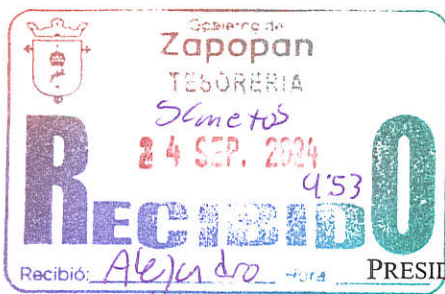 Gobierno de
Zapopan
TESORERIA
24 SEP. 2024
4:53
RECIBIDO
Recibió: Alejandro Hora
PRESID